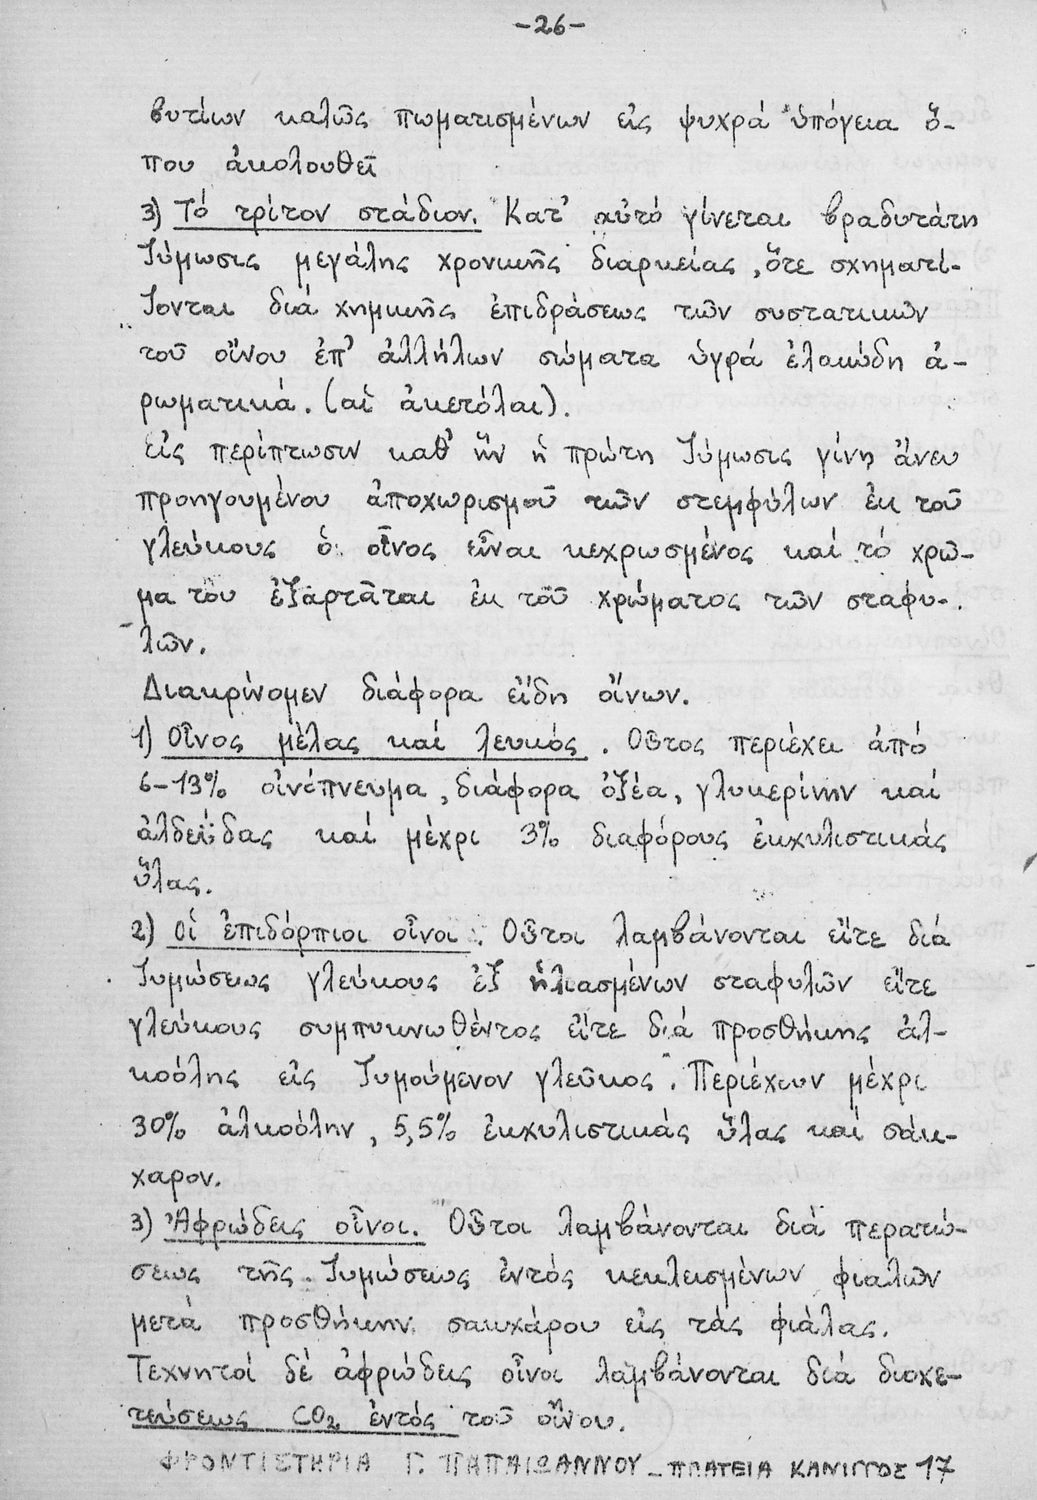 -26-
βυτίων καλῶς πωματισμένων εἰς ψυχρά ὑπόγεια ὅ-
που ἀκολουθεῖ
3) Τό τρίτον στάδιον. Κατ' αὐτό γίνεται βραδυτάτη
ζύμωσις μεγάλης χρονικῆς διαρκείας, ὅτε σχηματί-
ζονται διά χημικῆς ἐπιδράσεως τῶν συστατικῶν
τοῦ οἴνου ἐπ' ἀλλήλων σώματα ὑγρά ἐλαιώδη ἀ-
ρωματικά. (αἱ ἀκετόλαι).
Εἰς περίπτωσιν καθ' ἥν ἡ πρώτη ζύμωσις γίνῃ ἄνευ
προηγουμένου ἀποχωρισμοῦ τῶν στεμφύλων ἐκ τοῦ
γλεύκους ὁ οἶνος εἶναι κεχρωσμένος καί τό χρῶ-
μα του ἐξαρτᾶται ἐκ τοῦ χρώματος τῶν σταφυ-
λῶν.
Διακρίνομεν διάφορα εἴδη οἴνων.
1) Οἶνος μέλας καί λευκός. Οὗτος περιέχει ἀπό
6-13% οἰνόπνευμα, διάφορα ὀξέα, γλυκερίνην καί
ἀλδεΰδας καί μέχρι 3% διαφόρους ἐκχυλιστικάς
ὕλας.
2) Οἱ ἐπιδόρπιοι οἶνοι. Οὗτοι λαμβάνονται εἴτε διά
ζυμώσεως γλεύκους ἐξ ἡλιασμένων σταφυλῶν εἴτε
γλεύκους συμπυκνωθέντος εἴτε διά προσθήκης ἀλ-
κοόλης εἰς ζυμούμενον γλεῦκος. Περιέχουν μέχρι
30% ἀλκοόλην, 5,5% ἐκχυλιστικάς ὕλας καί σάκ-
χαρον.
3) Ἀφρώδεις οἶνοι. Οὗτοι λαμβάνονται διά περατώ-
σεως τῆς ζυμώσεως ἐντός κεκλεισμένων φιαλῶν
μετά προσθήκην σακχάρου εἰς τάς φιάλας.
Τεχνητοί δέ ἀφρώδεις οἶνοι λαμβάνονται διά διοχε-
τεύσεως CO₂ ἐντός τοῦ οἴνου.
ΦΡΟΝΤΙΣΤΗΡΙΑ Γ. ΠΑΠΑΙΩΑΝΝΟΥ - ΠΛΑΤΕΙΑ ΚΑΝΙΓΓΟΣ 17